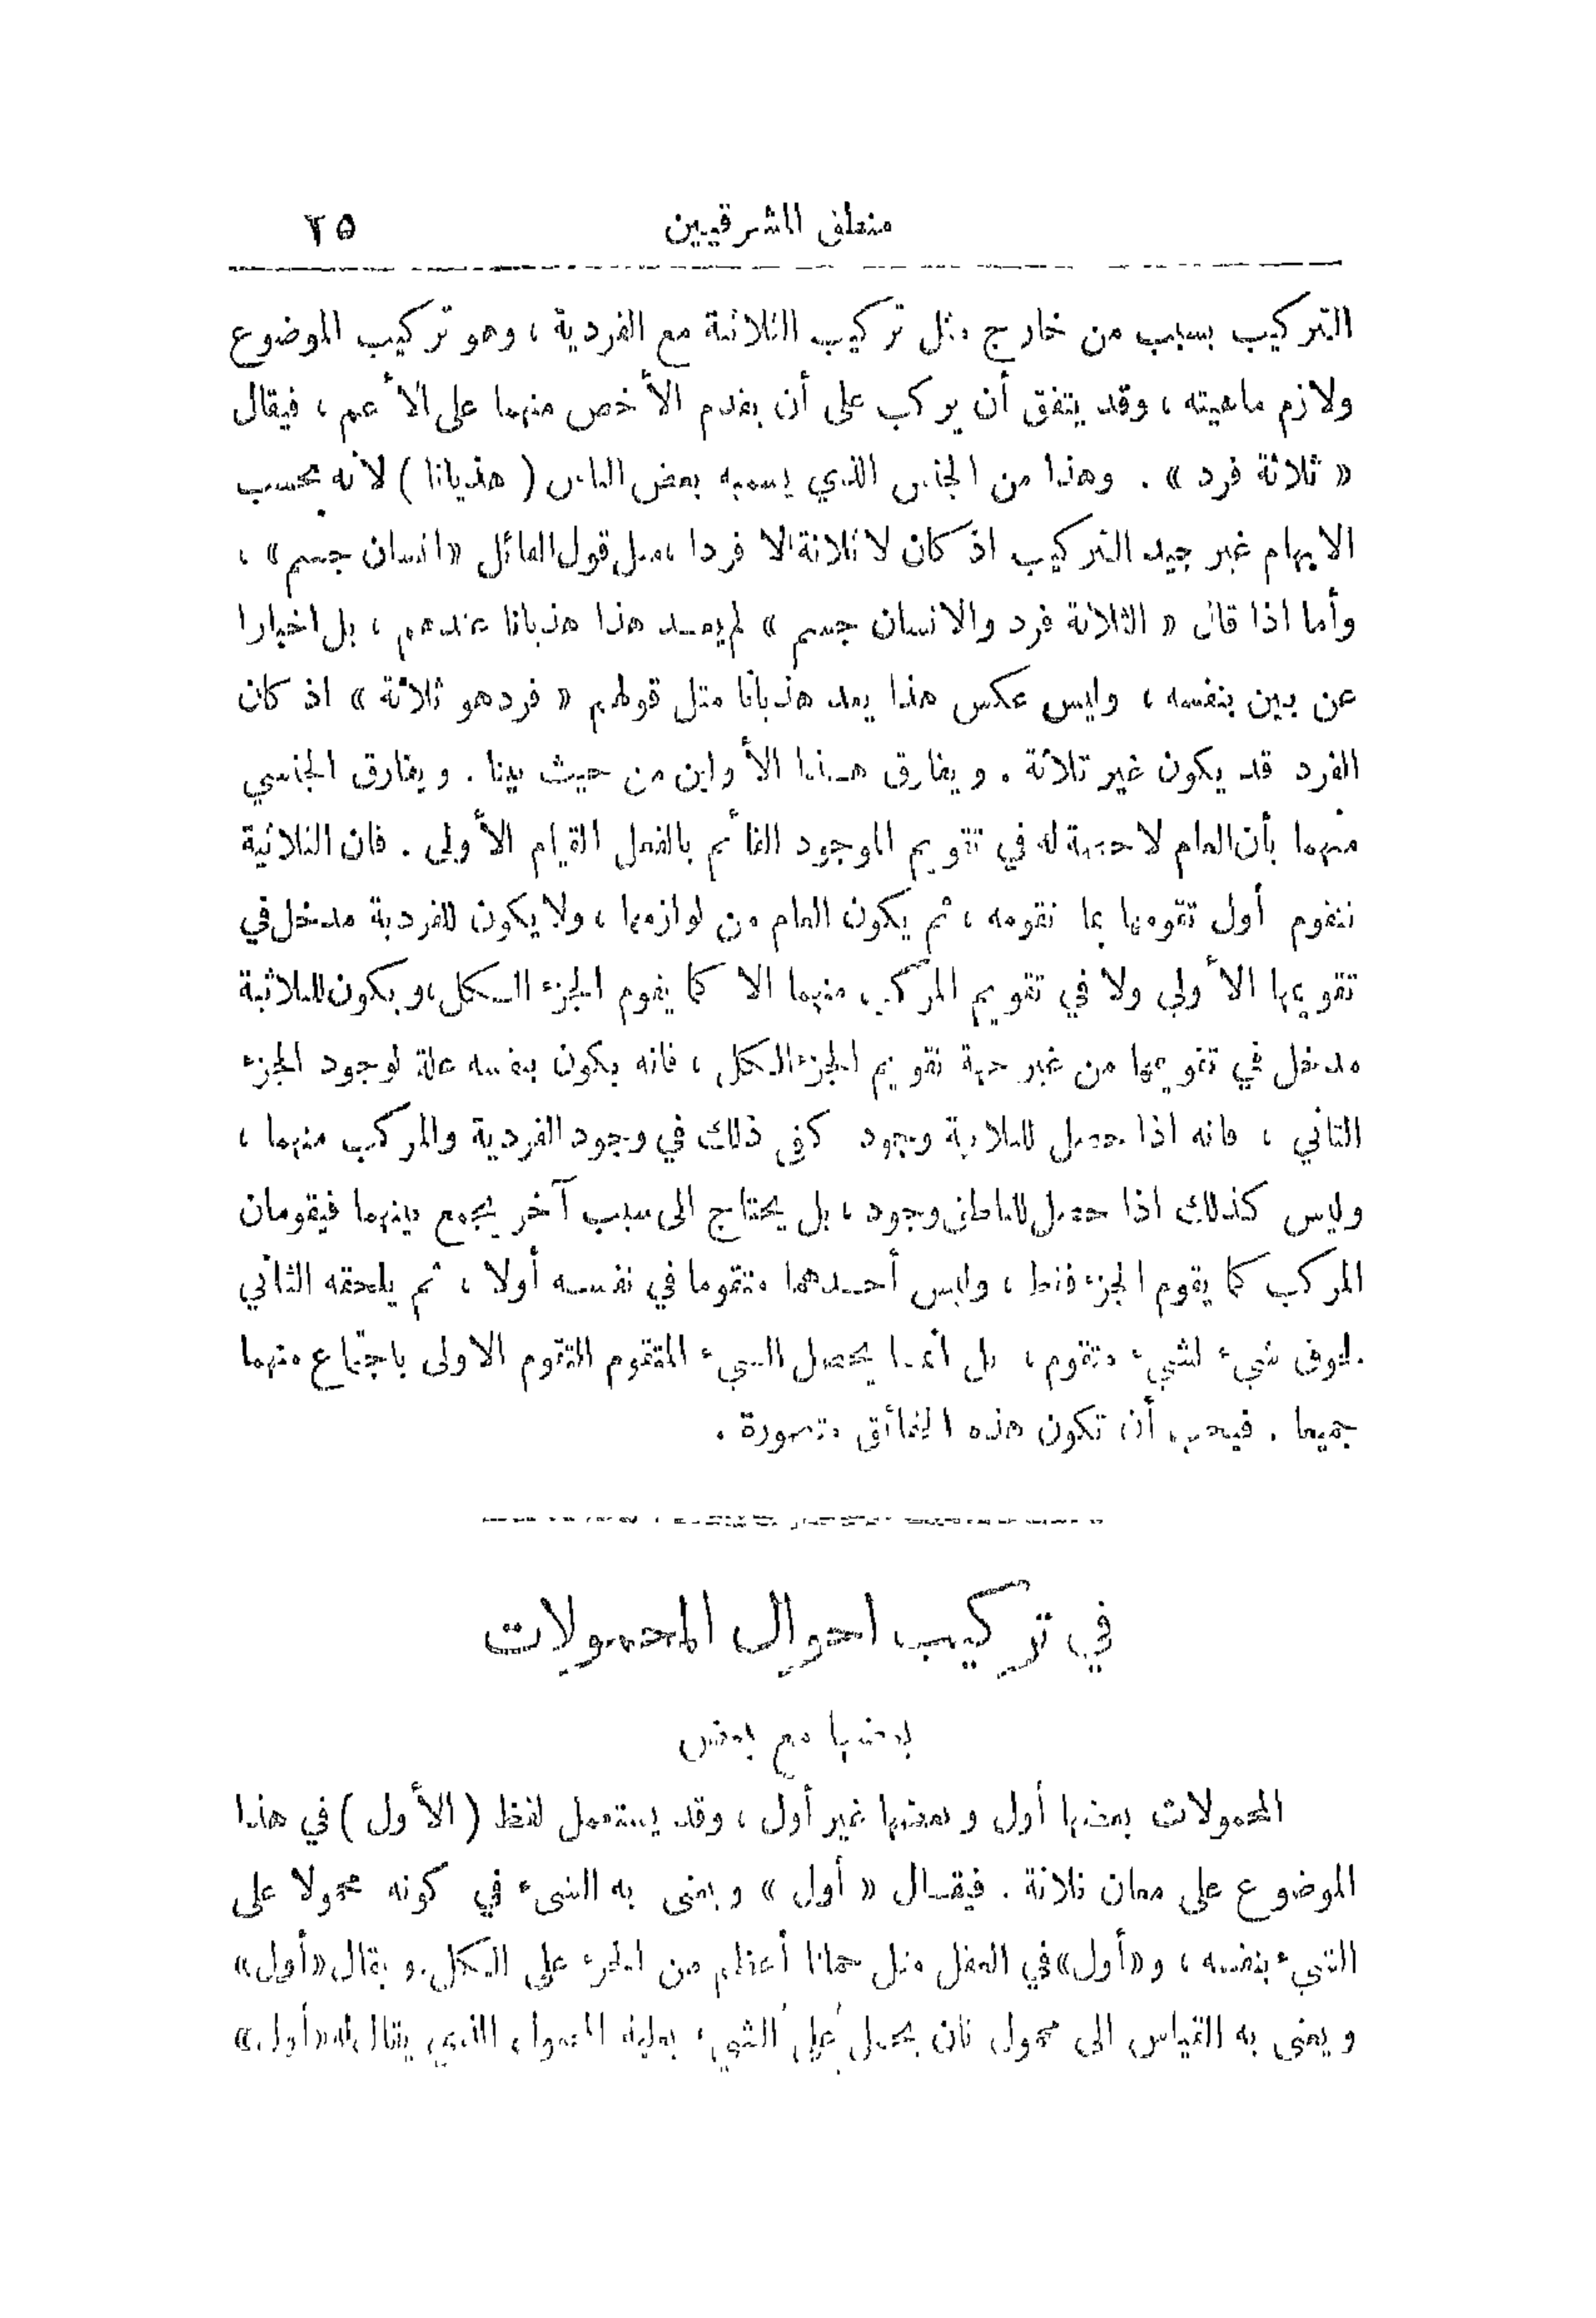 منطق المشرقيين ٢٥
التركيب بسبب من خارج مثل تركيب الثلاثة مع الفردية ، وهو تركيب الموضوع
ولازم ماهيته ، وقد يتفق أن يركب على أن يقدم الأخص منهما على الأعم ، فيقال
« ثلاثة فرد » . وهذا من الجنس الذي يسميه بعض الناس ( هذيانا ) لانه بحسب
الايهام غير جيد التركيب اذ كان لا ثلاثة الا فردا ، مثل قول القائل « انسان جسم » ،
وأما اذا قال « الثلاثة فرد والانسان جسم » لم يعد هذا هذيانا عندهم ، بل اخبارا
عن بين بنفسه ، وليس عكس هذا يعد هذيانا مثل قولهم « فرد هو ثلاثة » اذ كان
الفرد قد يكون غير ثلاثة . ويفارق هذا الأولين من حيث بينا . ويفارق الجنسي
منهما بأن العام لا له في تقويم الموجود القائم بالفعل القيام الأولى . فان الثلاثية
تتقوم أول تقومها بما تقومه ، ثم يكون العام من لوازمها ، ولا يكون للفردية مدخل في
تقويمها الأولى ولا في تقويم المركب منهما الا كما يقوم الجزء الكل ، ويكون للثلاثية
مدخل في تقويمها من غير جهة تقويم الجزء الكل ، فانه يكون بنفسه علة لوجود الجزء
الثاني ، فانه اذا حصل للثلاثية وجود كفى ذلك في وجود الفردية والمركب منهما ،
وليس كذلك اذا حصل للناطق وجود ، بل يحتاج الى سبب آخر يجمع بينهما فيقومان
المركب كما يقوم الجزء فقط ، وليس أحدهما متقوما في نفسه أولا ، ثم يلحقه الثاني
لحوق شيء لشيء متقوم ، بل انما يحصل الشيء المتقوم التقوم الاولى باجتماع منهما
جميعا . فيجب أن تكون هذه الحقائق متصورة .
في تركيب احوال المحمولات
بعضها مع بعض
المحمولات بعضها أول وبعضها غير أول ، وقد يستعمل لفظ ( الأول ) في هذا
الموضوع على معان ثلاثة . فيقال « أول » ويعنى به الشيء في كونه محمولا على
الشيء بنفسه ، و«أول» في العقل مثل حملنا أعظم من الجزء على الكل . ويقال «أول»
ويعنى به القياس الى محمول ثان يحمل على الشيء بعلية المحمول الذي يقال له «أول»